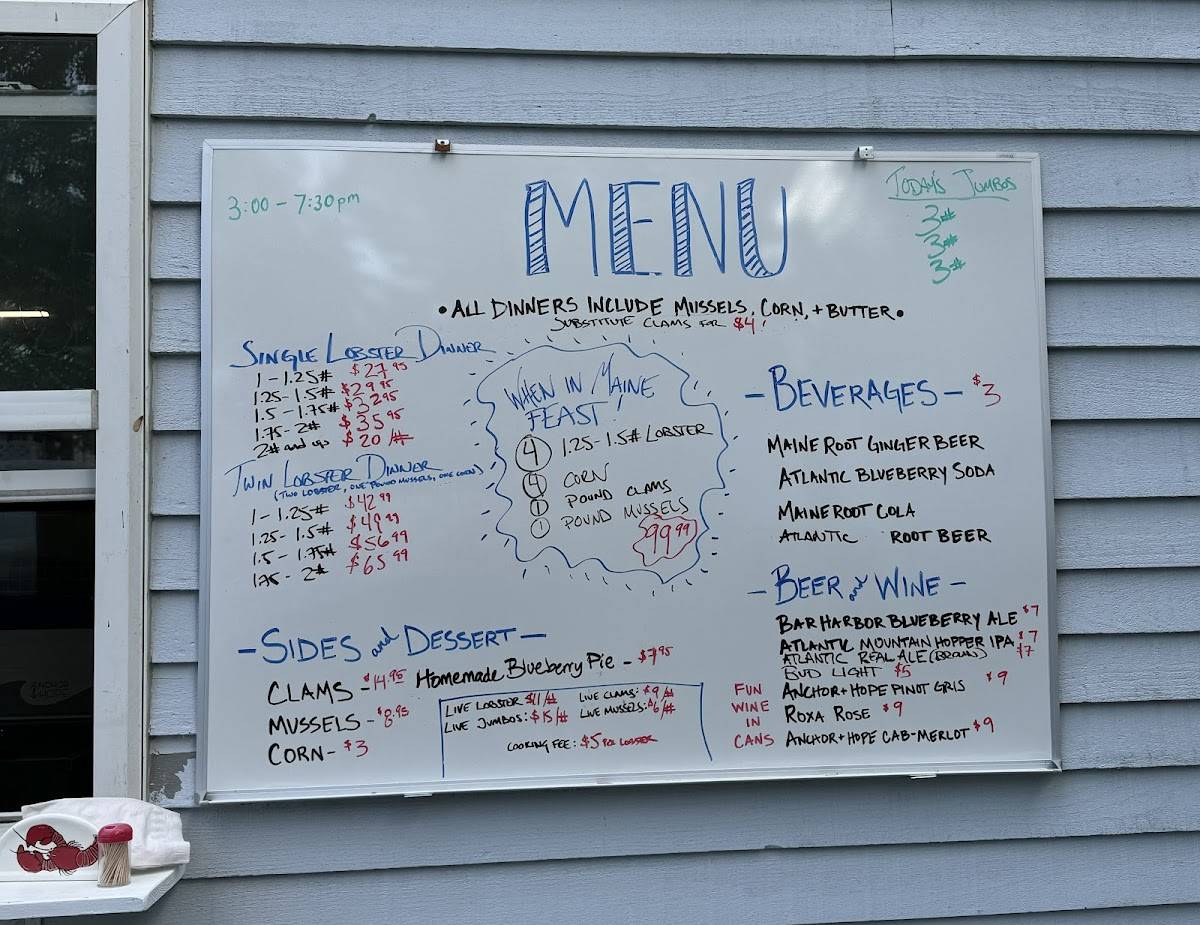 3:00 - 7:30pm
MENU
TODAY'S JUMBOS
3#
3#
3#
• ALL DINNERS INCLUDE MUSSELS, CORN, + BUTTER •
SUBSTITUTE CLAMS FOR $4!
SINGLE LOBSTER DINNER
1 - 1.25# $27.95
1.25 - 1.5# $29.95
1.5 - 1.75# $32.95
1.75 - 2# $35.95
2# and up $20/#
TWIN LOBSTER DINNER
(TWO LOBSTER, ONE POUND MUSSELS, ONE CORN)
1 - 1.25# $42.99
1.25 - 1.5# $49.99
1.5 - 1.75# $56.99
1.75 - 2# $65.99
WHEN IN MAINE
FEAST!
4 1.25 - 1.5# LOBSTER
4 CORN
1 POUND CLAMS
1 POUND MUSSELS
99.99
- BEVERAGES - $3
MAINE ROOT GINGER BEER
ATLANTIC BLUEBERRY SODA
MAINE ROOT COLA
ATLANTIC ROOT BEER
- BEER and WINE -
BAR HARBOR BLUEBERRY ALE $7
ATLANTIC MOUNTAIN HOPPER IPA $7
ATLANTIC REAL ALE (BROWN) $7
BUD LIGHT $5
FUN WINE IN CANS
ANCHOR + HOPE PINOT GRIS $9
ROXA ROSE $9
ANCHOR + HOPE CAB-MERLOT $9
- SIDES and DESSERT -
CLAMS - $14.95
MUSSELS - $8.95
CORN - $3
Homemade Blueberry Pie - $7.95
LIVE LOBSTER $11/# LIVE CLAMS: $9/#
LIVE JUMBOS: $15/# LIVE MUSSELS: $6/#
COOKING FEE: $5 PER LOBSTER